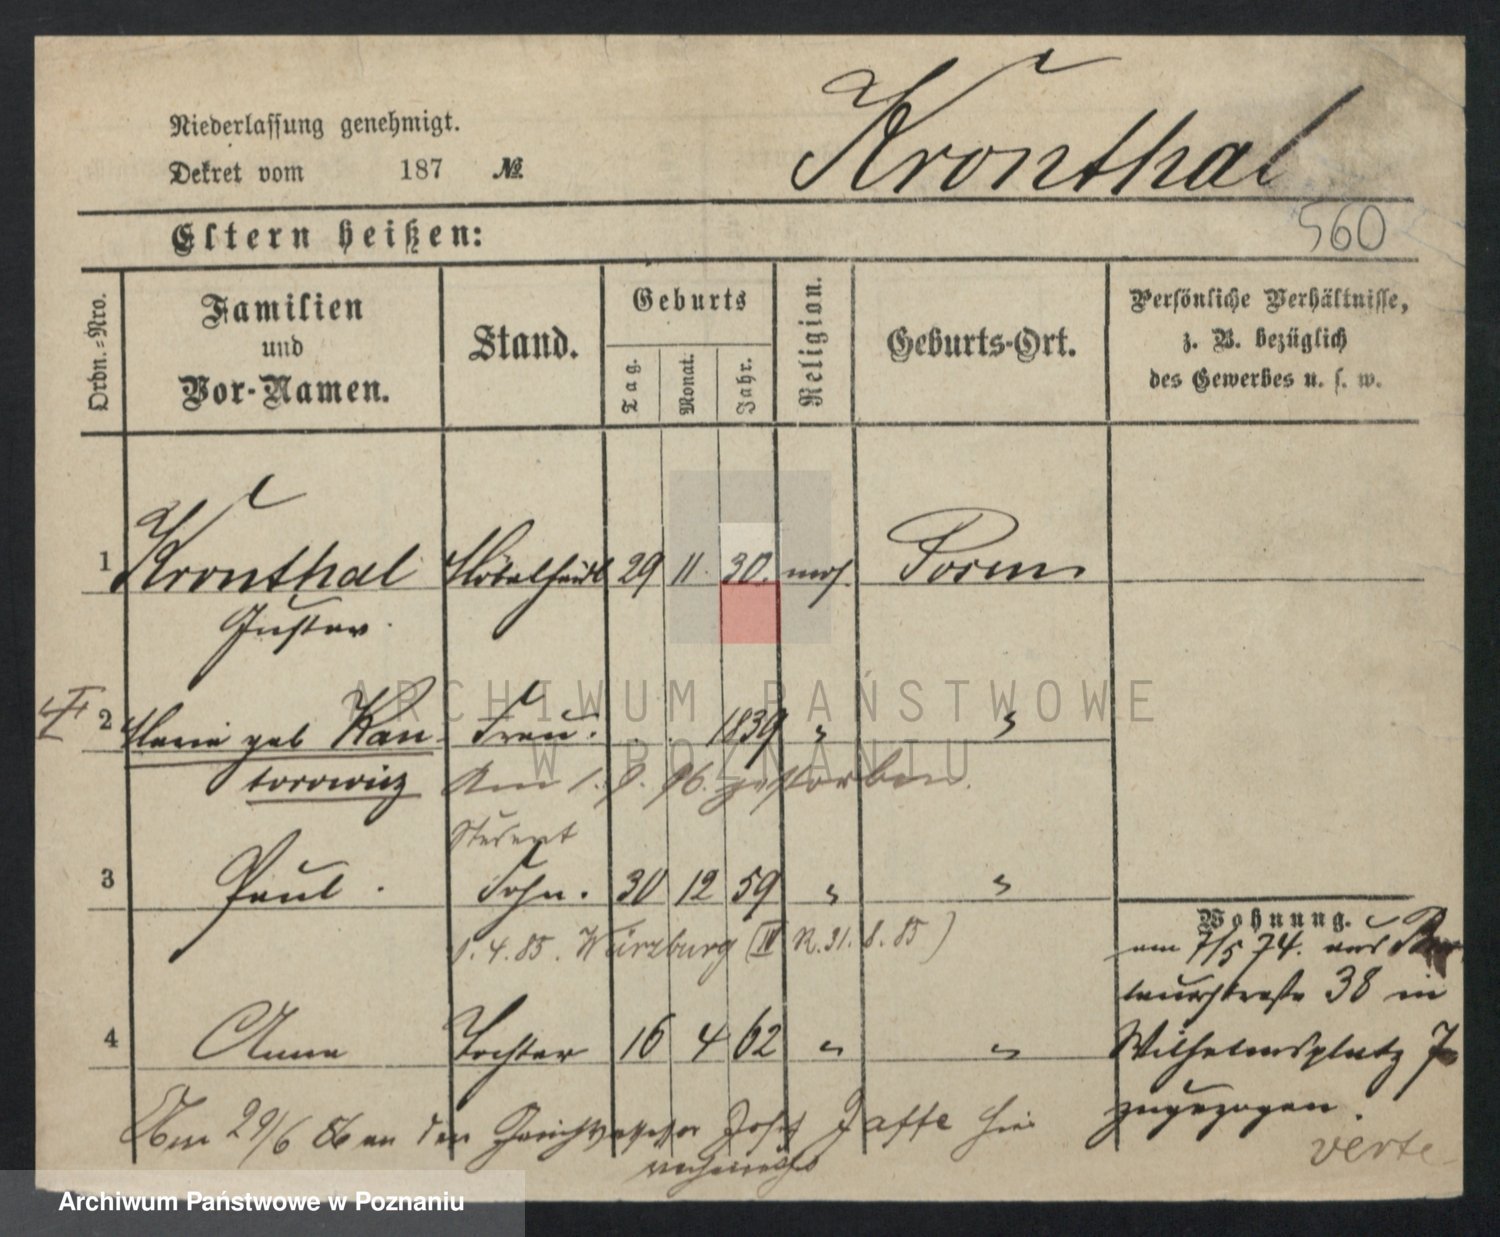 Niederlassung genehmigt.
Dekret vom 187 №
Kronthal
560
Eltern heißen:
Ordn.-Nro.
Familien
und
Vor-Namen.
Stand.
Geburts
Tag.
Monat.
Jahr.
Religion.
Geburts-Ort.
Persönliche Verhältnisse,
z. B. bezüglich
des Gewerbes u. s. w.
1 Kronthal Möbelhändl 29 11. 30. mos. Posen
Gustav.
2 Marie geb Kan- Frau. 1839 " "
torowicz Am 1. 9. 96. gestorben.
Student
3 Paul. Sohn. 30 12 59 " "
1.4.85. Würzburg (IV R. 31. 8. 85)
Wohnung.
am 7/5 74. aus
38 in
4 Anna Tochter 16 4 62 " "
Wilhelmsplatz 7
zugezogen.
Am 29/6 86 an den Josef Jaffe hier
verheirathet
verte
ARCHIWUM PAŃSTWOWE
W POZNANIU
Archiwum Państwowe w Poznaniu